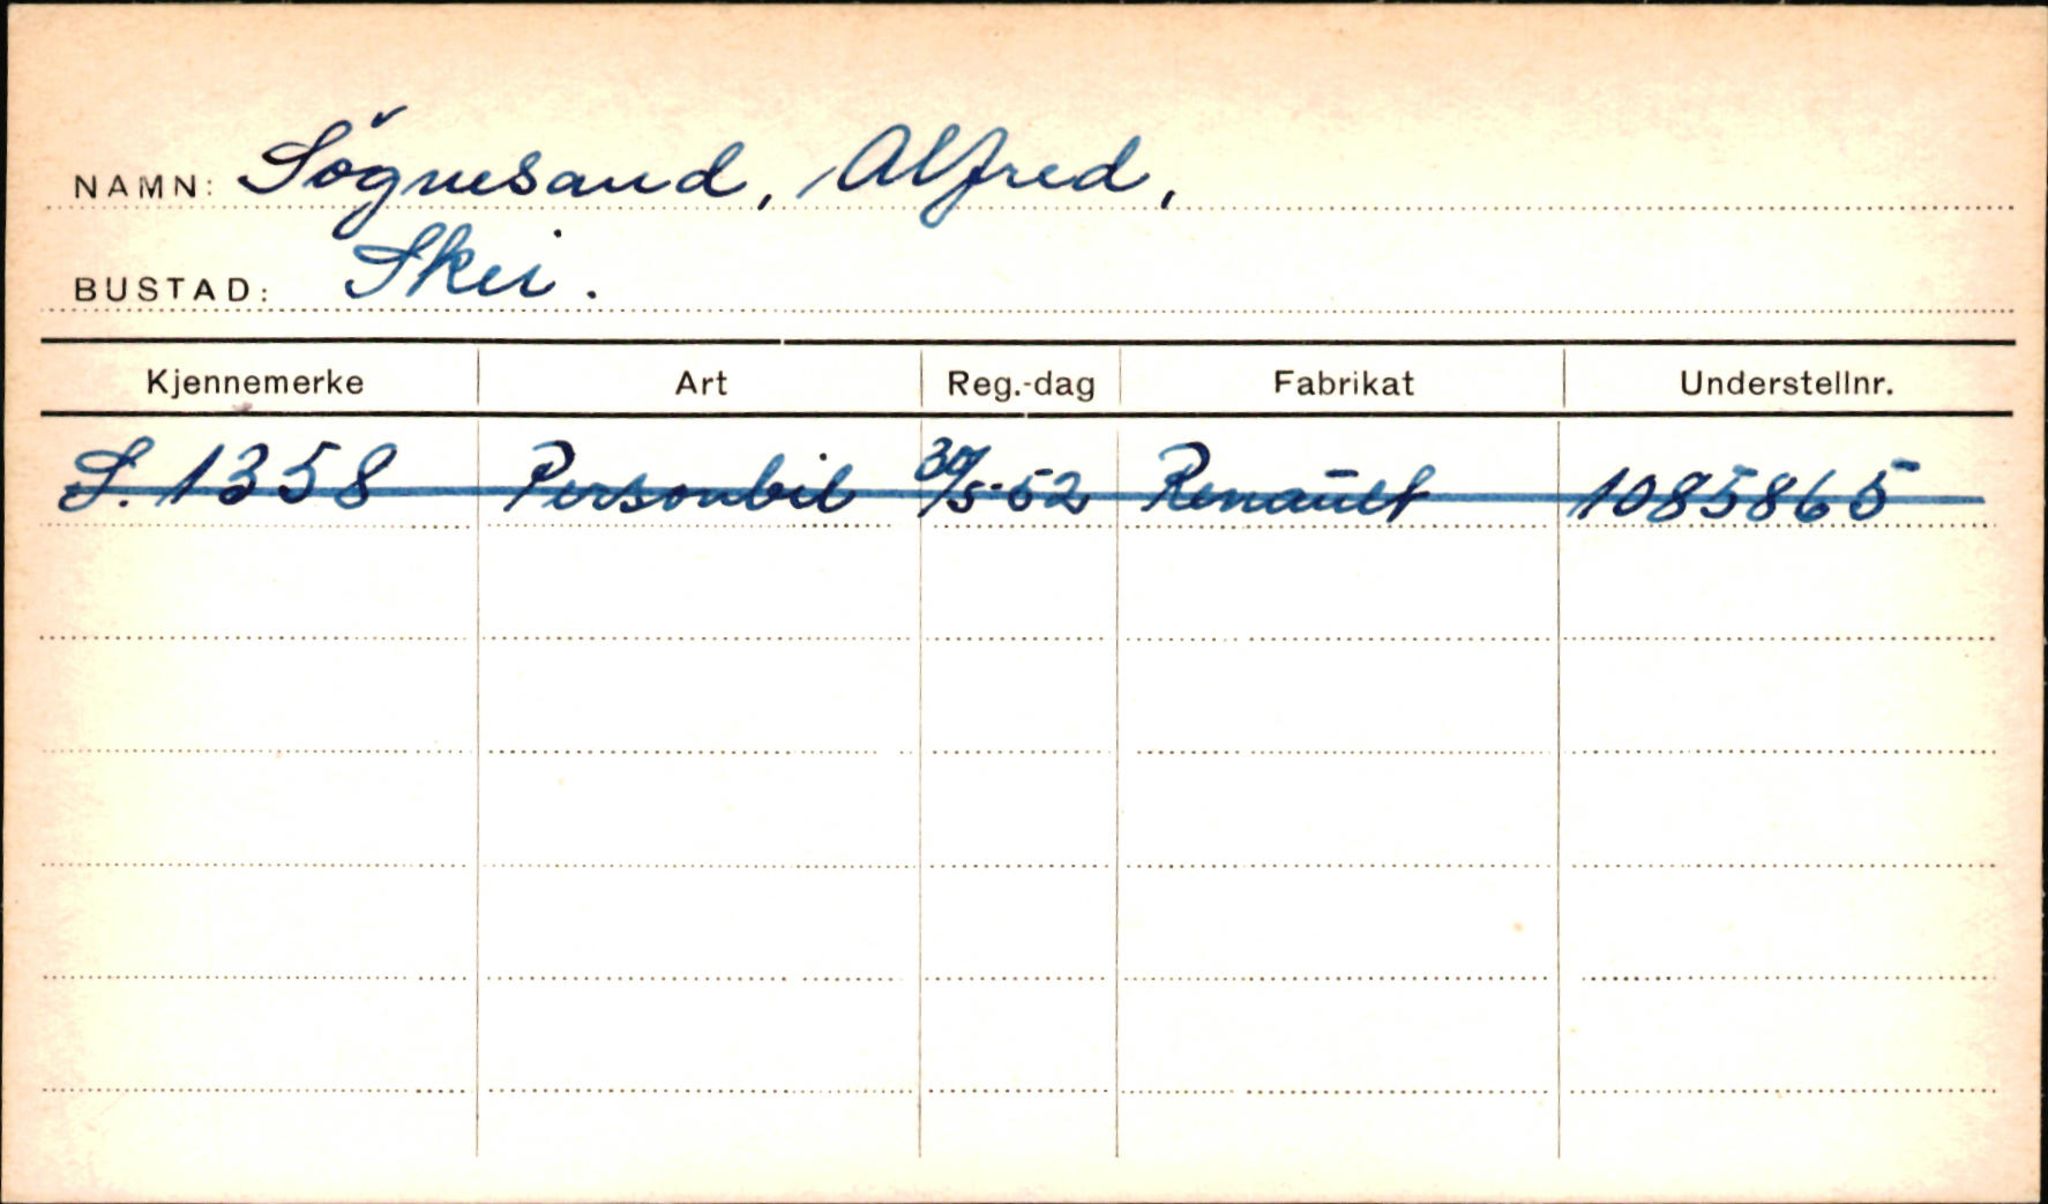 NAMN: Søgnesand, Alfred,
BUSTAD: Skei.
Kjennemerke Art Reg.-dag Fabrikat Understellnr.
S. 1358 Personbil 30/5-52 Renault 1085865